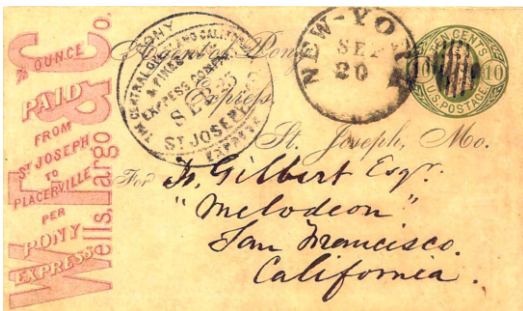 ½ OUNCE
PAID
FROM
ST JOSEPH
TO
PLACERVILLE
PER
PONY
EXPRESS
Wells, Fargo & Co.
PONY
THE CENTRAL OVERLAND CALIFORNIA
& PIKES PEAK
EXPRESS COMPANY
SEP 25
ST JOSEPH
EXPRESS
NEW-YORK
SEP
20
TEN CENTS
10 10
U.S. POSTAGE
Pony
Express,
St. Joseph, Mo.
For
Gilbert Esqr.
"Melodeon"
San Francisco.
California.